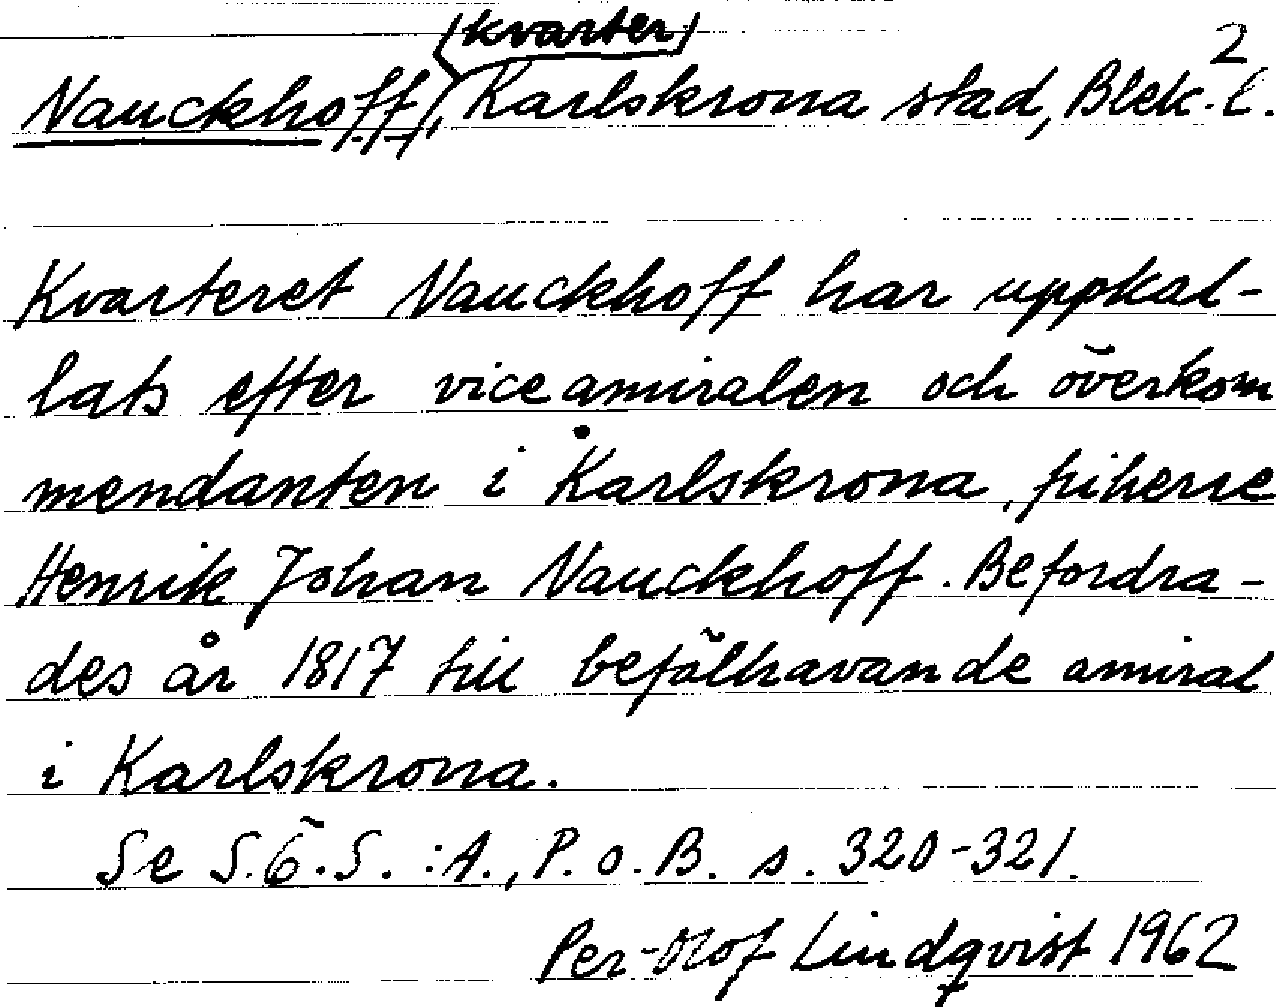 (kvarter) 2
Nauckhoff, Karlskrona stad, Blek. l.
Kvarteret Nauckhoff har uppkal-
lats efter viceamiralen och överkom
mendanten i Karlskrona, friherre
Henrik Johan Nauckhoff. Befordra-
des år 1817 till befälhavande amiral
i Karlskrona.
Se S.Ö.S. :A., P. o. B. s. 320-321.
Per-Olof Lindqvist 1962